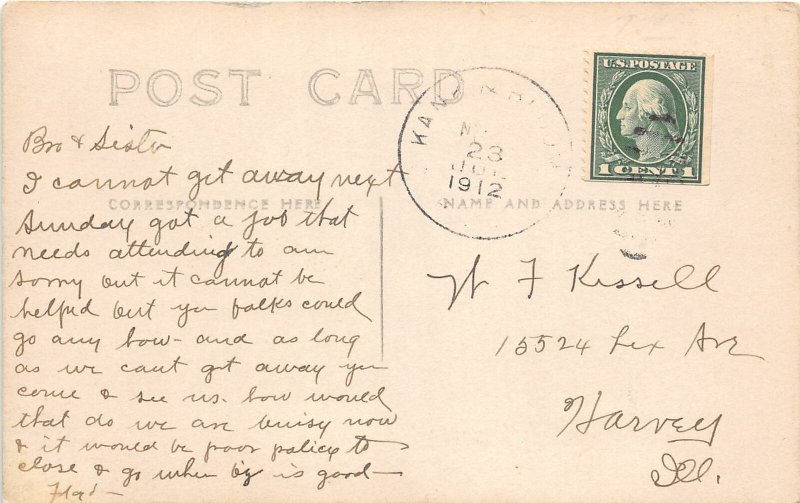 POST CARD
U.S. POSTAGE
1 CENT 1
23
1912
Bro & Sister
I cannot get away next
CORRESPONDENCE HERE
Sunday got a job that
needs attending to am
sorry but it cannot be
helped but you folks could
go any how - and as long
as we cant get away you
come & see us. how would
that do we are buisy now
& it would be poor policy to
close & go when is good -
NAME AND ADDRESS HERE
W F Kissell
15524 Lex Ave
Harvey
Ill.